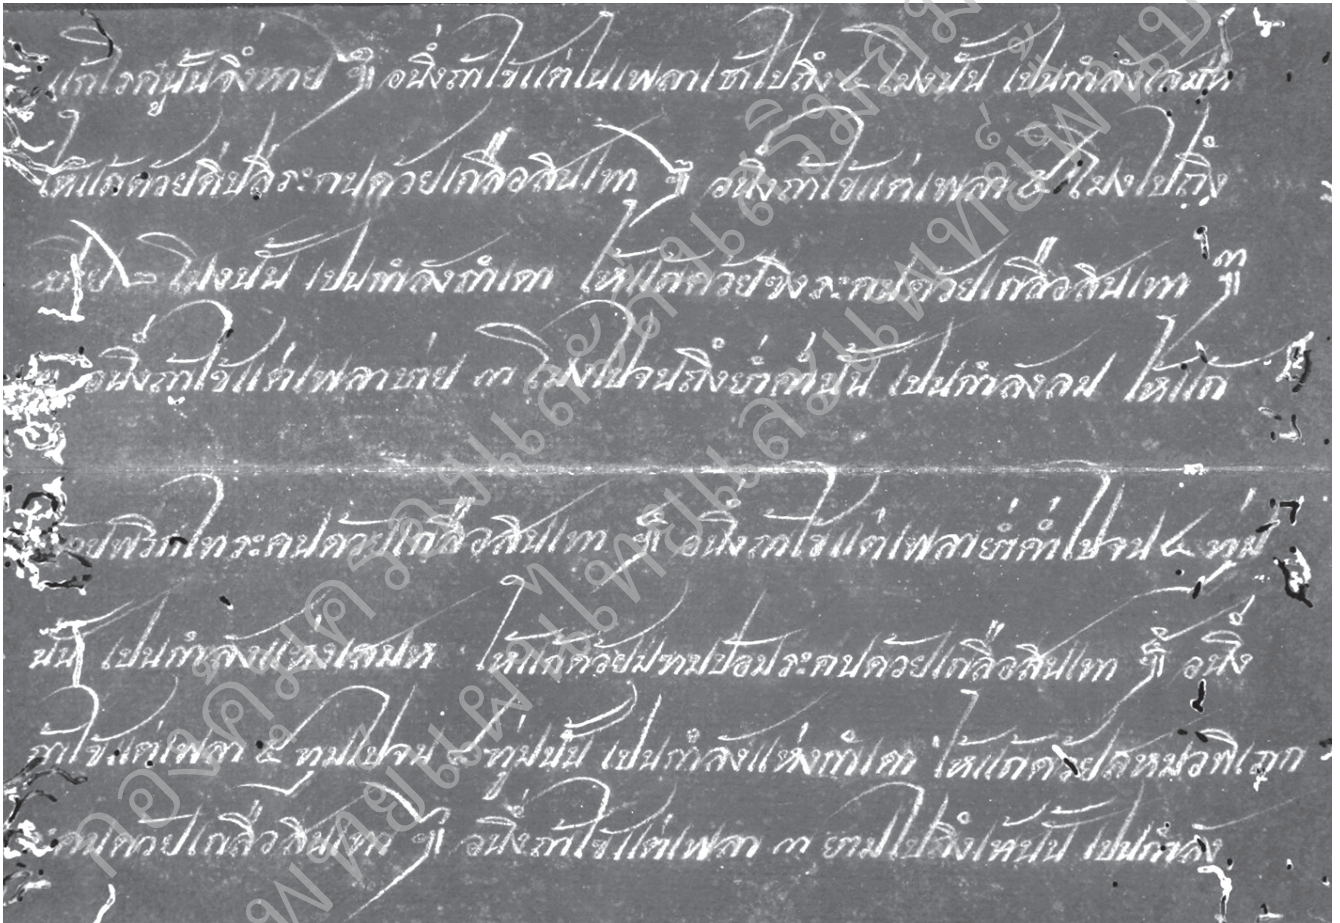 แก้โรคนั้นจึ่งหาย ๚ อนึ่งถ้าไข้แต่ในเพลาเช้าไปถึง ๔ โมงนั้น เปนกำลังเสมหะ
ให้แก้ด้วยดีปลีระคนด้วยเกลือสินเทา ๚ อนึ่งถ้าไข้แต่เพลา ๕ โมงไปถึง
บ่าย ๒ โมงนั้น เปนกำลังกำเดา ให้แก้ด้วยขิงระคนด้วยเกลือสินเทา ๚
อนึ่งถ้าไข้แต่เพลาบ่าย ๓ โมงไปจนถึงย่ำค่ำนั้น เปนกำลังลม ให้แก้
ด้วยพริกไทระคนด้วยเกลือสินเทา ๚ อนึ่งถ้าไข้แต่เพลาย่ำค่ำไปจน ๔ ทุ่ม
นั้น เปนกำลังแห่งเสมหะ ให้แก้ด้วยบทบป้อมระคนด้วยเกลือสินเทา ๚ อนึ่ง
ถ้าไข้แต่เพลา ๕ ทุมไปจน ๘ ทุ่มนั้น เปนกำลังแห่งกำเดา ให้แก้ด้วยสหมอพิเภก
ระคนด้วยเกลือสินเทา ๚ อนึ่งถ้าไข้แต่เพลา ๓ ยามไปถึงเทนั้น เปนกำลัง